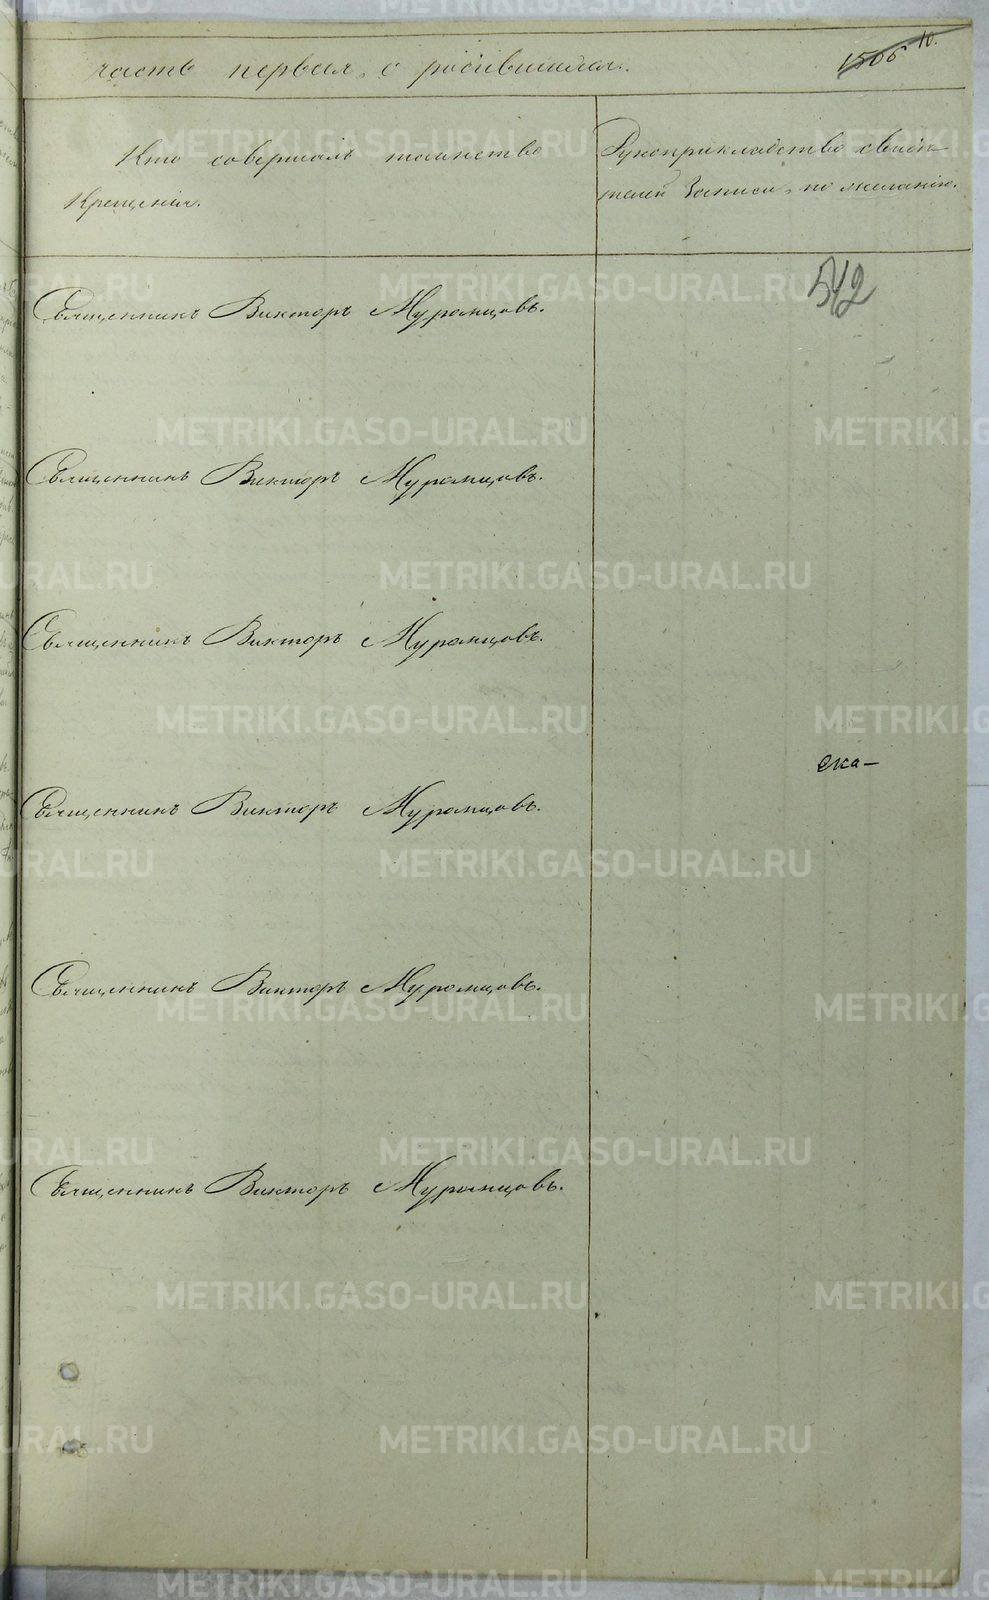 часть первая, о родившихся.
1506 10.
Кто совершалъ таинство
Крещенія.
Рукоприкладство свидѣ-
телей записи, по желанію.
542
Священникъ Викторъ Муромцовъ.
Священникъ Викторъ Муромцовъ.
Священникъ Викторъ Муромцовъ.
ска-
Священникъ Викторъ Муромцовъ.
Священникъ Викторъ Муромцовъ.
Священникъ Викторъ Муромцовъ.
METRIKI.GASO-URAL.RU